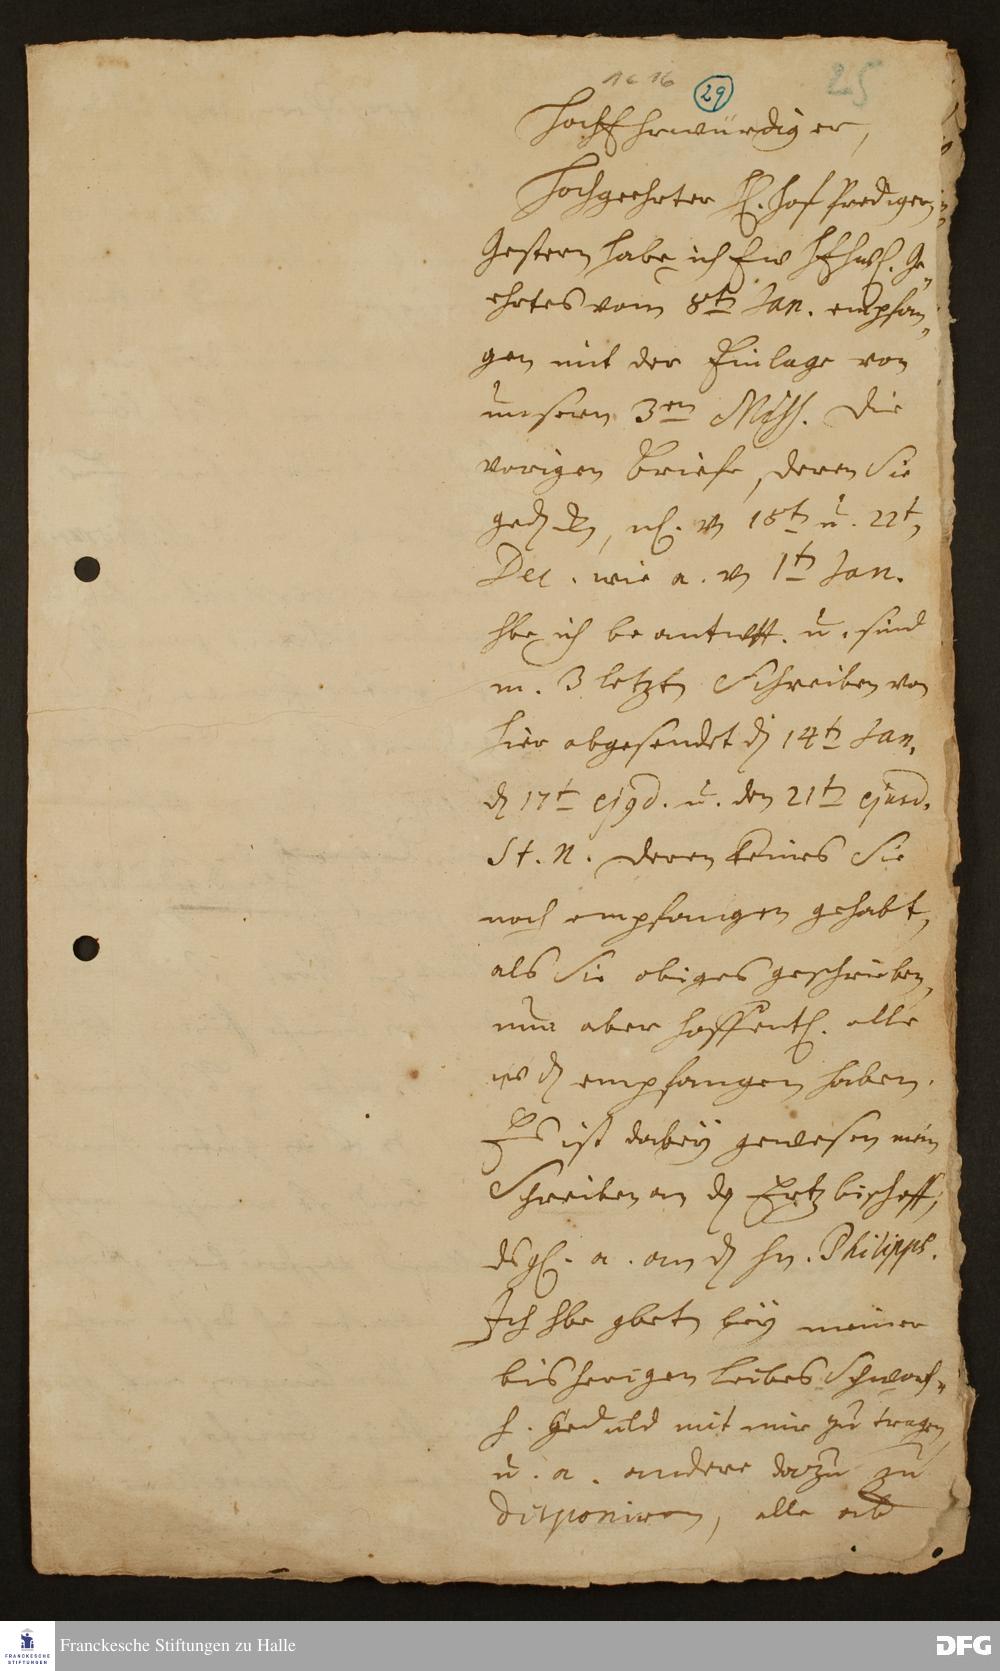 1C16 29 25
HochEhrwürdiger,
Hochgeehrter H. Hof Prediger,
Gestern habe ich Ew HEhrw. Ge-
ehrtes vom 8t Jan. empfan-
gen mit der Einlage von
unsern 3en Miss. Die
vorigen Briefe, deren Sie
gedencken, nl. v 18t u. 22t
Dec. wie a. v 1t Jan.
hbe ich beantwtt. u. sind
m. 3 letztn Schreiben von
hier abgesendet den 14t Jan.
den 17t ejusd. u. den 21t ejusd.
St. N. deren keines Sie
noch empfangen gehabt,
als Sie obiges geschrieben,
nun aber hoffentl. alle
empfangen haben.
Es ist dabey gewesen mein
Schreiben an den Ertzbischoff,
dsgl. a. an den Hn. Philipps.
Ich hbe gbetn bey meiner
bisherigen Leibes Schwach-
h. Gedult mit mir zu tragen,
u. a. andere dazu zu
disponiren, alle
Franckesche Stiftungen zu Halle
FRANCKESCHE
STIFTUNGEN
DFG